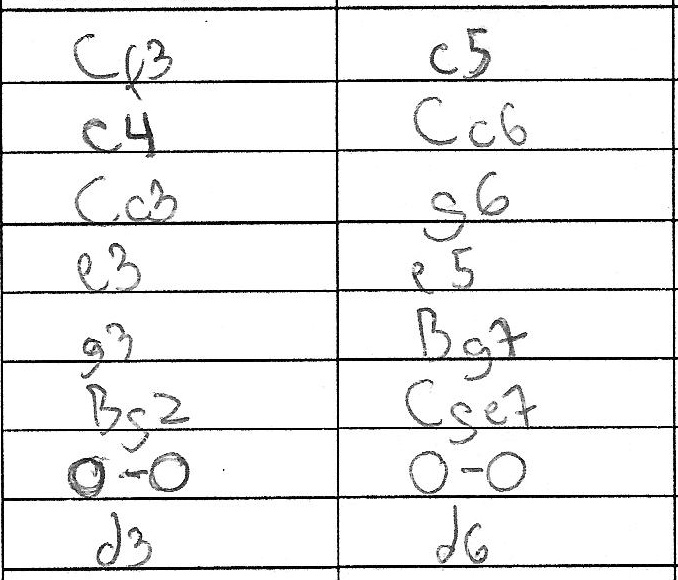 Cf3 c5
c4 Cc6
Cc3 g6
e3 e5
g3 Bg7
Bg2 Cge7
O-O O-O
d3 d6